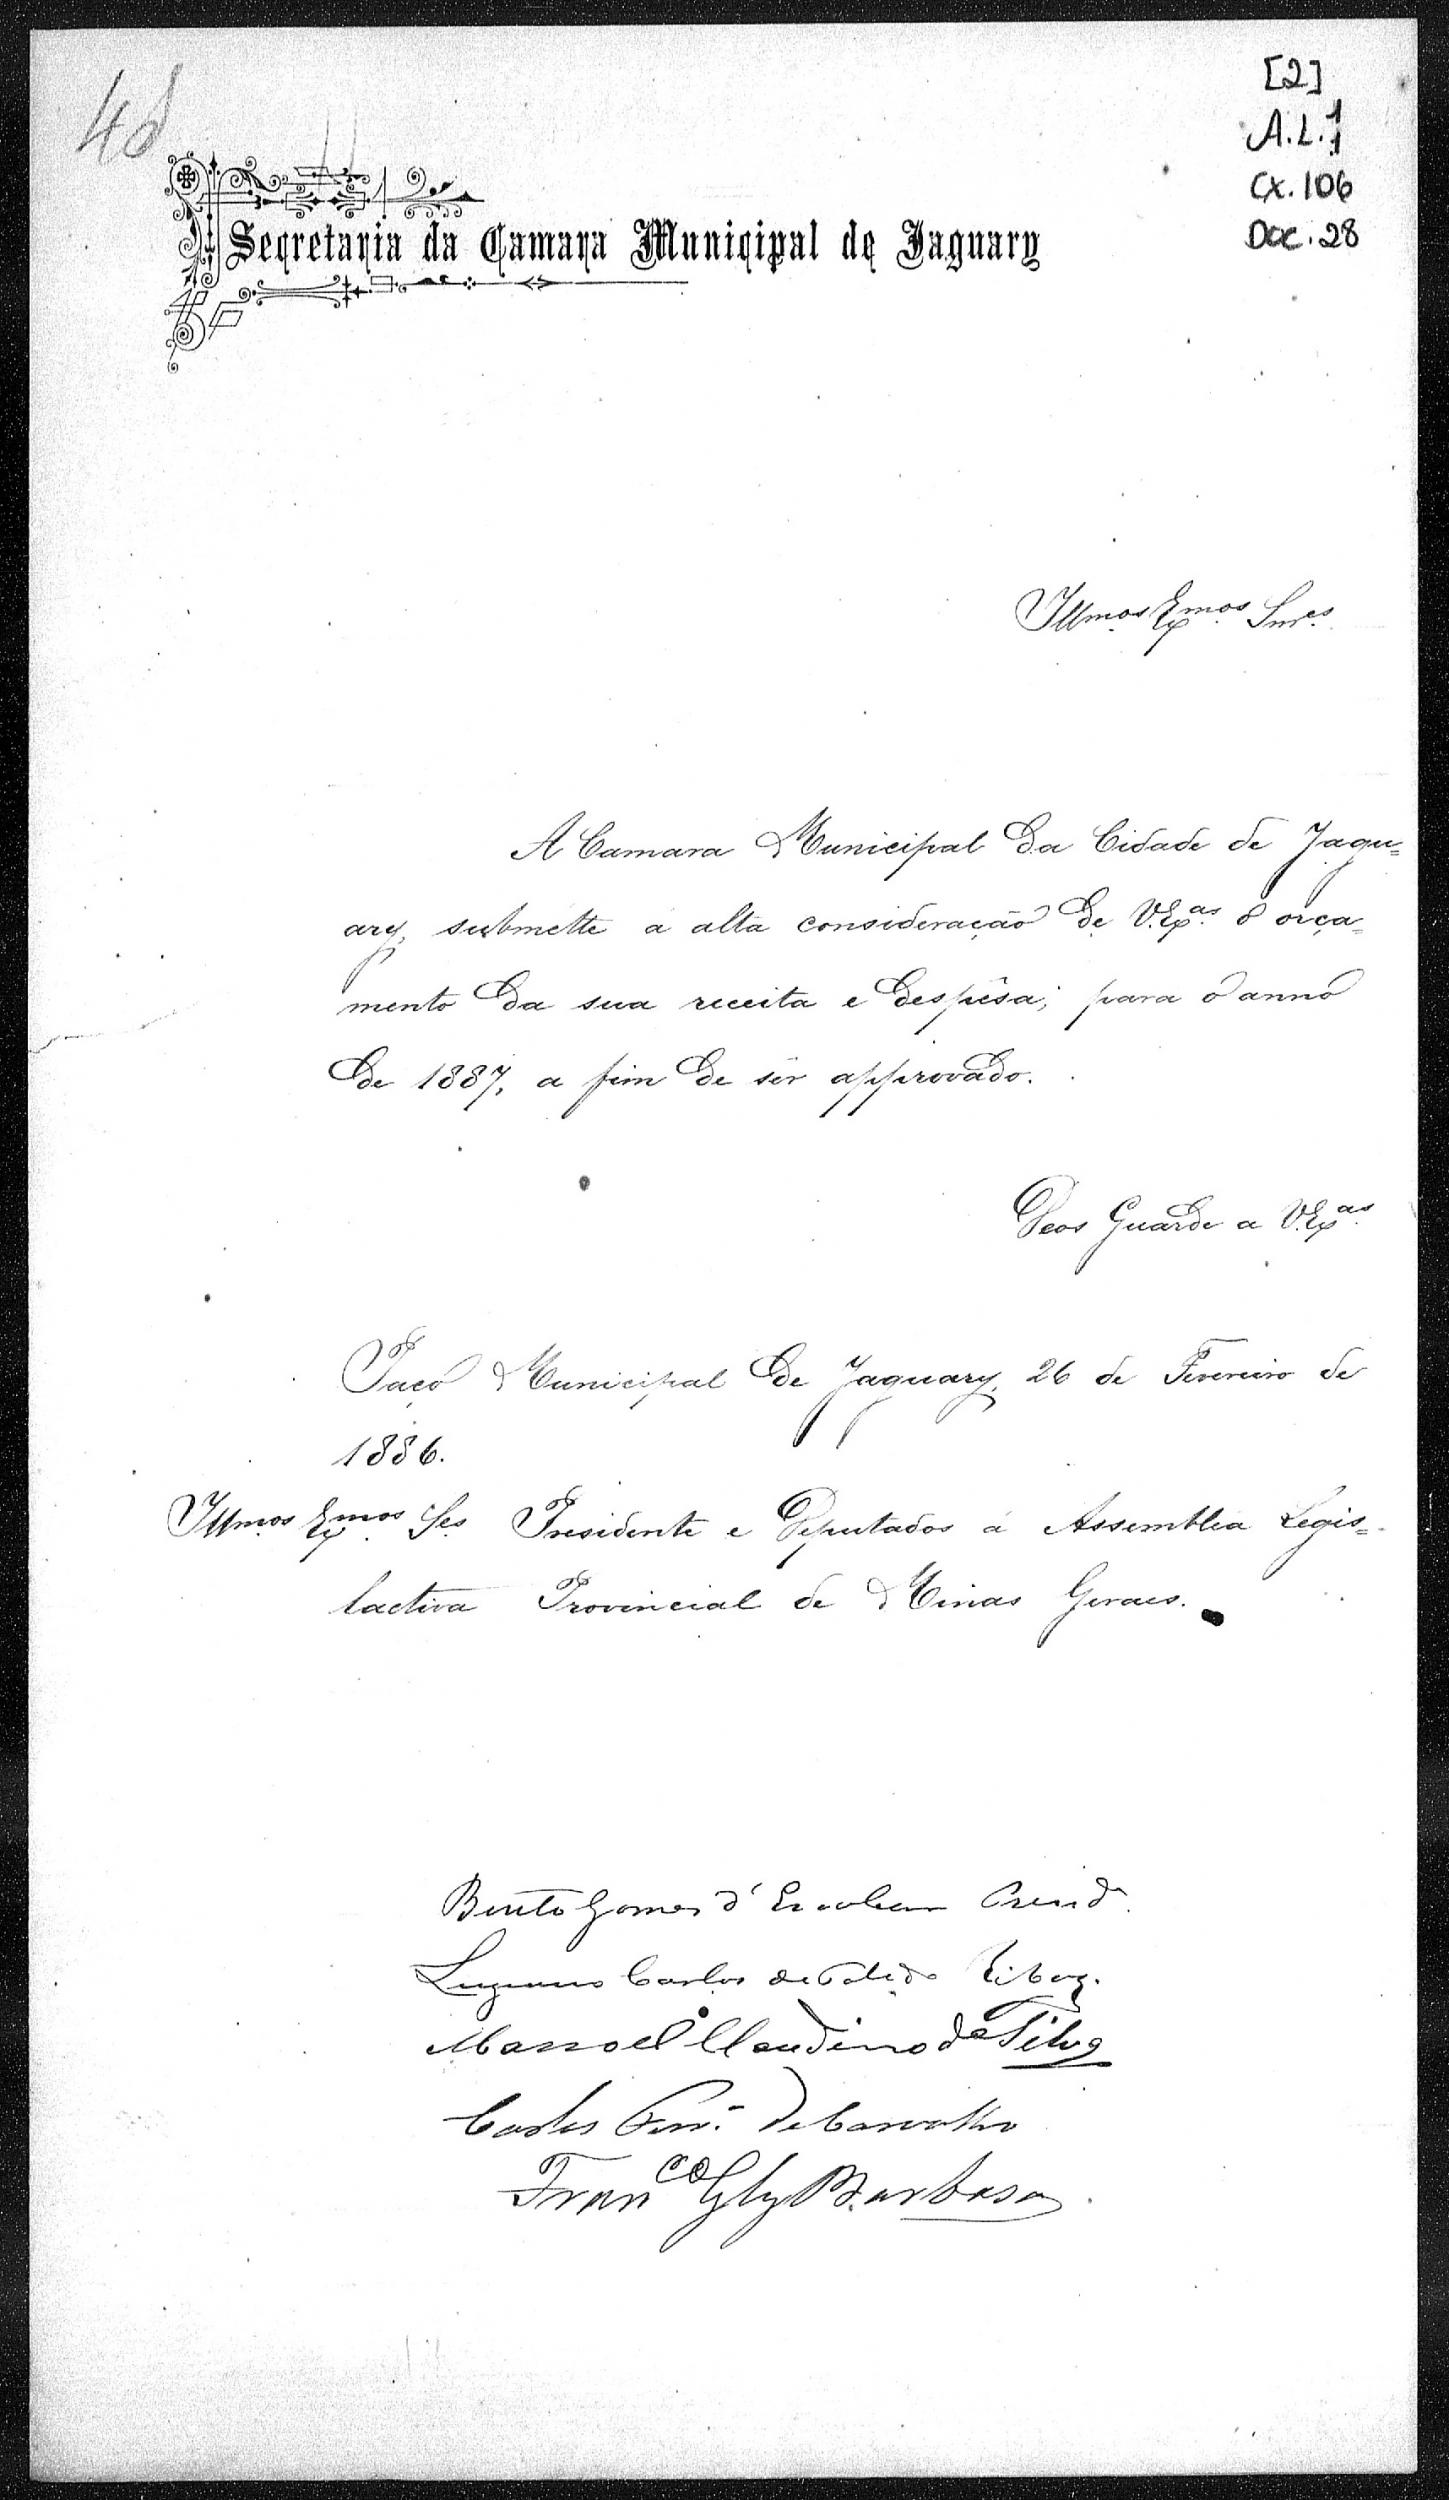 48
[2]
A.L. 1
Cx. 106
Doc. 28
Secretaria da Camara Municipal de Jaguary
Illmos Exmos Snres
A Camara Municipal da Cidade de Jagu=
ary, submette a alta consideração de V.Exas o orça=
mento da sua receita e despêsa; para o anno
de 1887, a fim de sêr approvado.
Deos Guarde a V.Exas
Paço Municipal de Jaguary, 26 de Fevereiro de
1886.
Illmos Exmos Ses Presidente e Deputados á Assemblea Legis=
lactiva Provincial de Minas Geraes.
Bento Gomes d'Escobar
Carlos de Toledo
Manoel Claudino da Silva
Carlos de Carvalho
Franco Barbosa